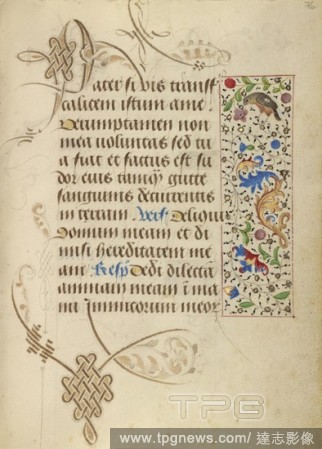 Pater si vis transf
calicem istum a me
Verumptamen non
mea voluntas sed tu
a fiat et factus est su
dor eius tamq̃ gutte
sanguinis decurrentis
in terram Vers̃ Reliqui
domum meam et di
misi hereditatem me
am Resp̃ Dedi dilectā
animam meam ī ma
nu inimicorum meor
TPG
www.tpgnews.com / 達志影像